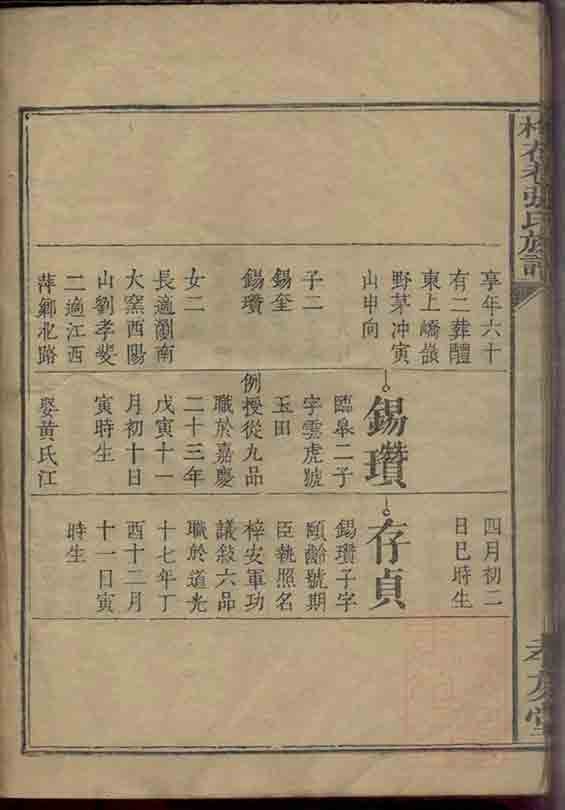 張氏族譜
孝友堂
享年六十
有二葬醴
東上嶠嶺
野茅冲寅
山申向
子二
錫奎
錫瓚
女二
長適瀏南
大窯酉陽
山劉孝燮
二適江西
萍鄉北路
錫瓚
臨皋二子
字雲虎號
玉田
例授從九品
職於嘉慶
二十三年
戊寅十一
月初十日
寅時生
娶黃氏江
四月初二
日巳時生
存貞
錫瓚子字
頤齡號期
臣執照名
梓安軍功
議敍六品
職於道光
十七年丁
酉十二月
十一日寅
時生